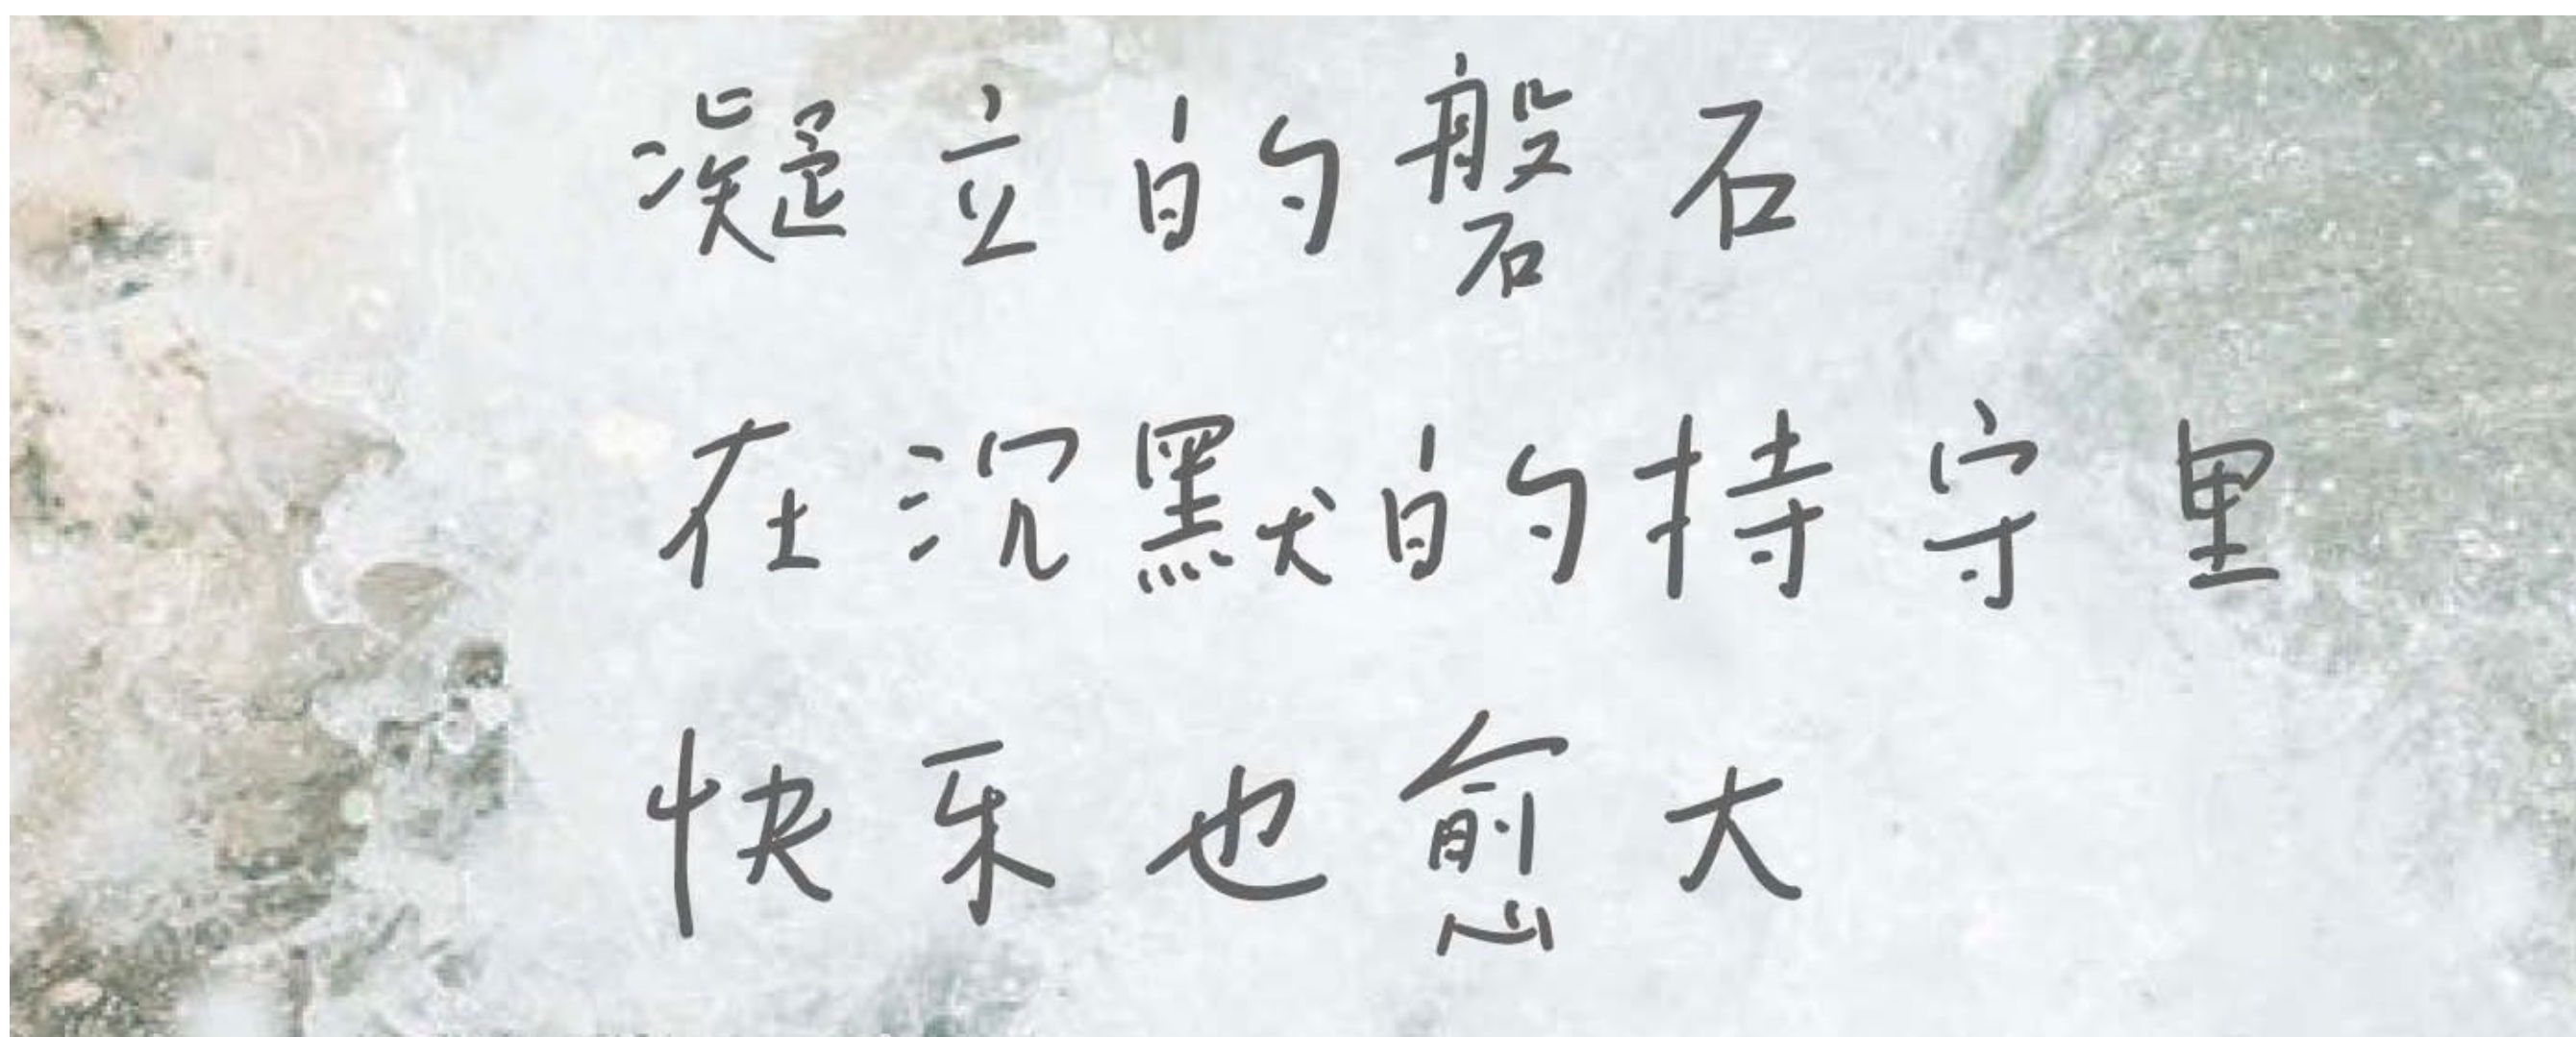 凝立的磐石
在沉默的持守里
快乐也愈大